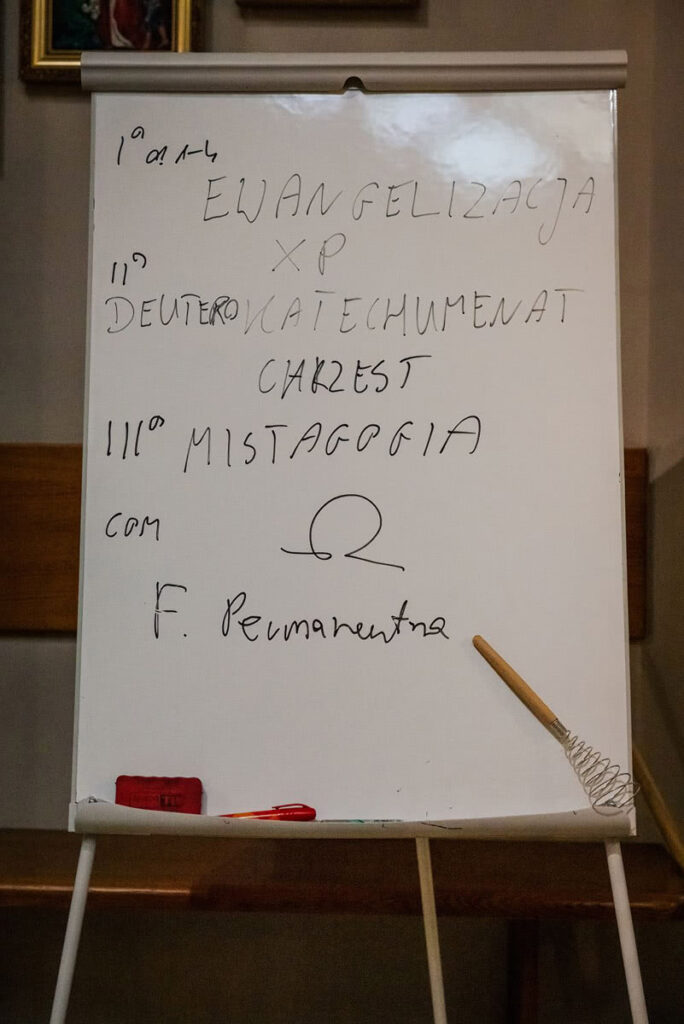 I° a. 1-4
EWANGELIZACJA
XP
II°
DEUTEROKATECHUMENAT
CHRZEST
III° MISTAGOGIA
com
Ω
F. Permanentna